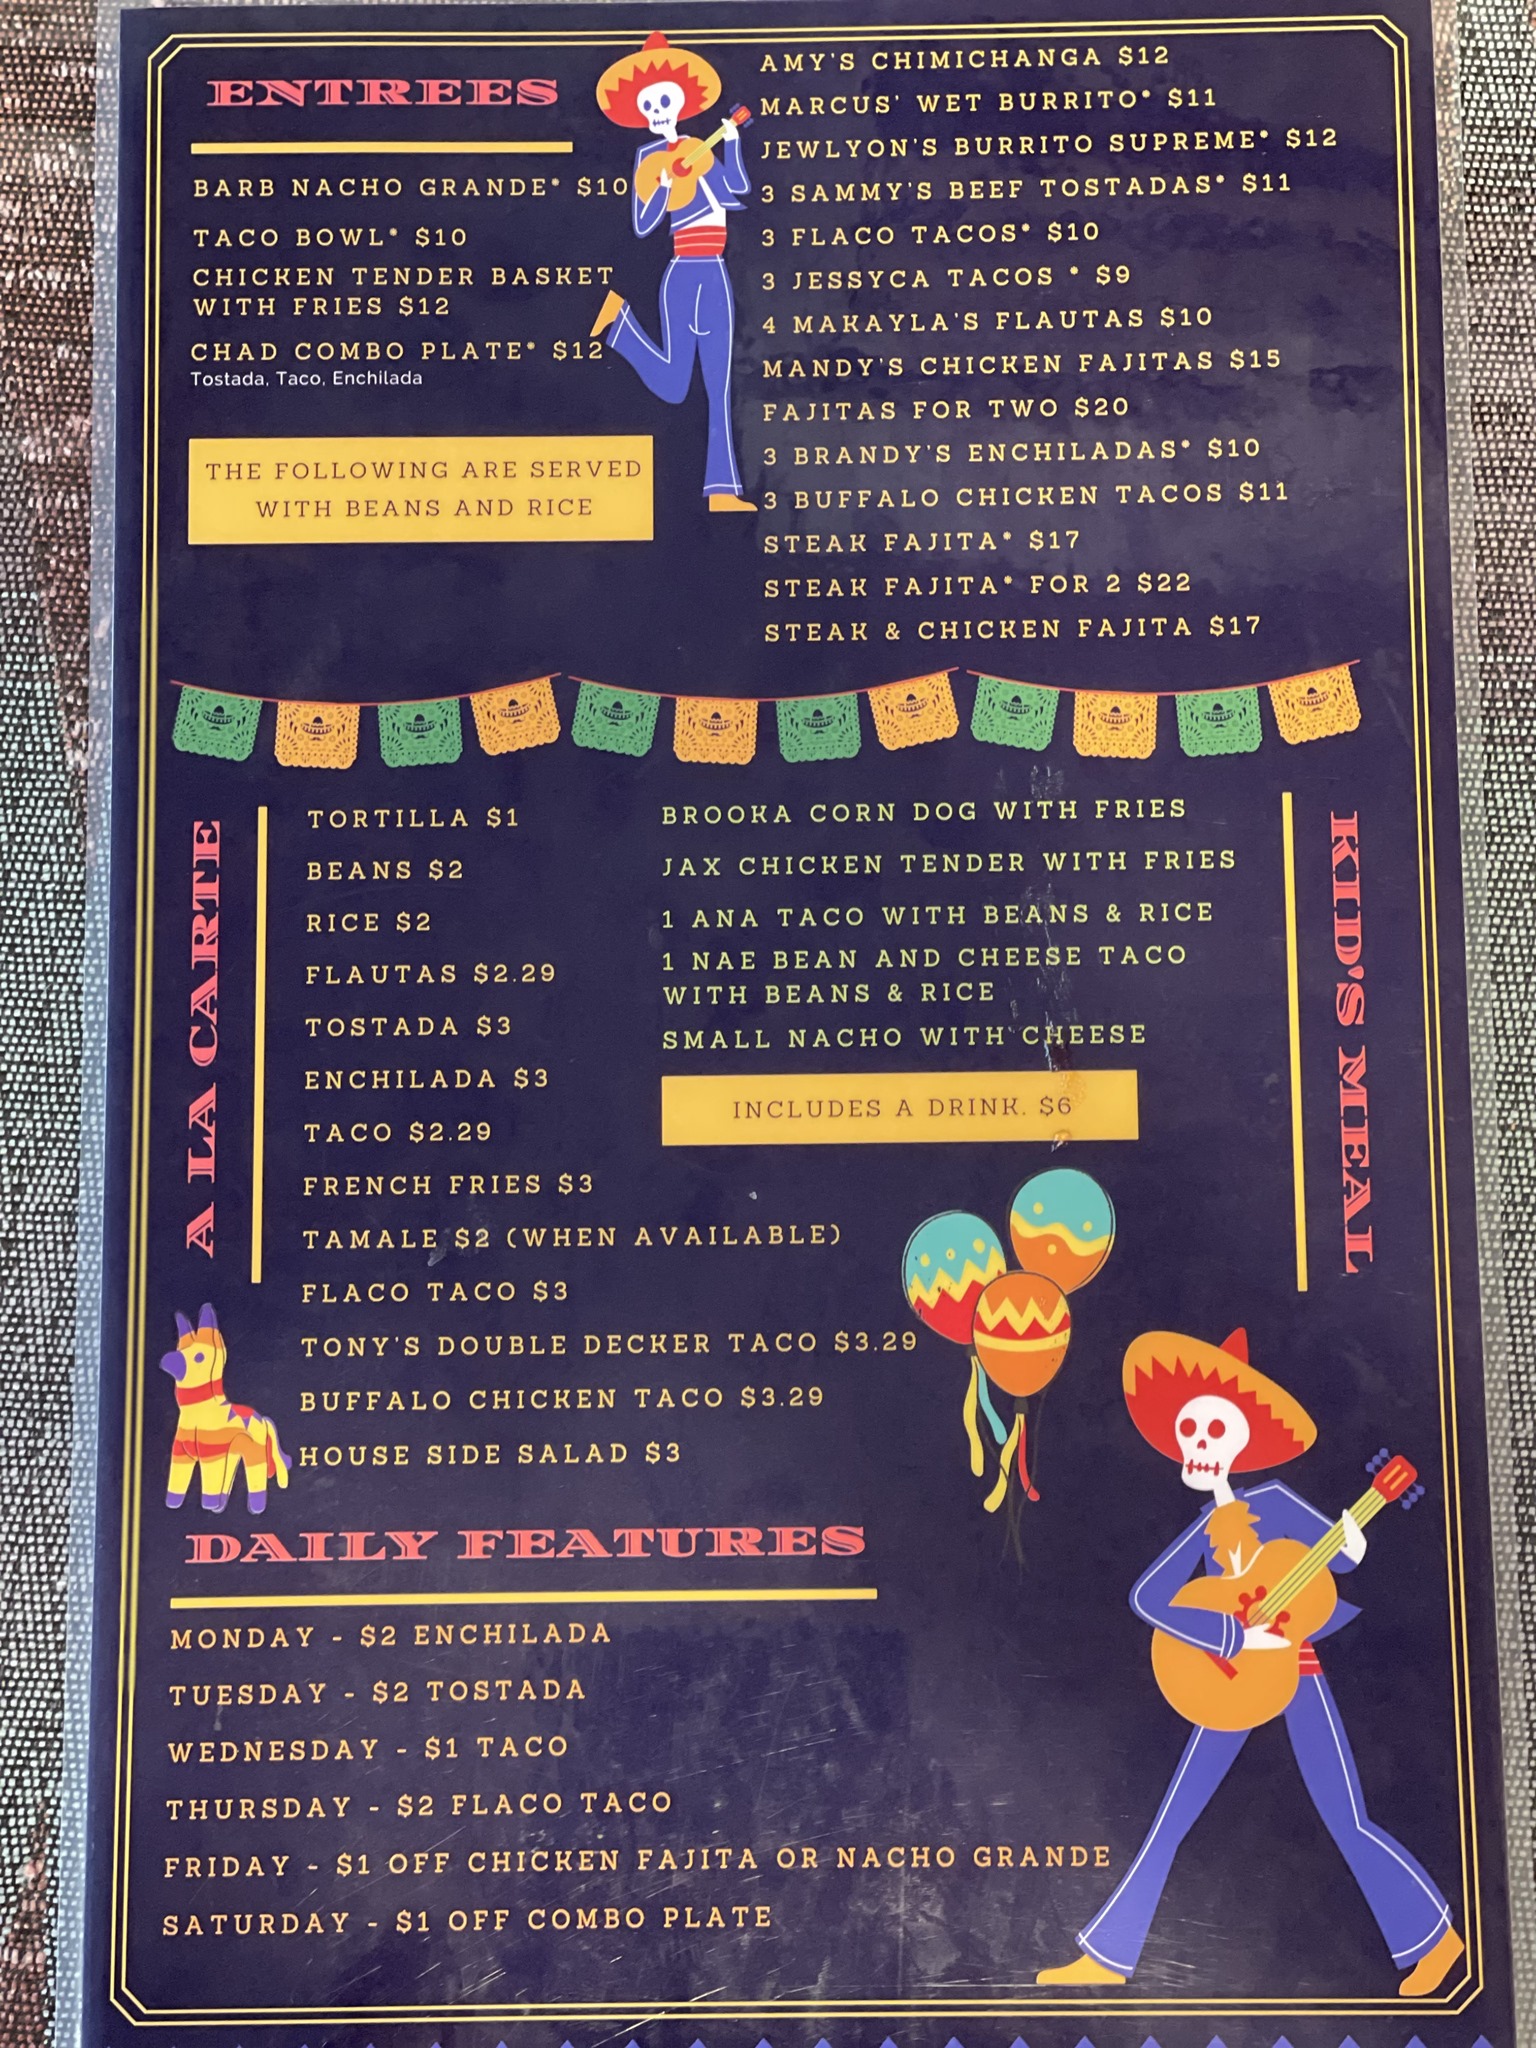 ENTREES
BARB NACHO GRANDE* $10
TACO BOWL* $10
CHICKEN TENDER BASKET
WITH FRIES $12
CHAD COMBO PLATE* $12
Tostada, Taco, Enchilada
THE FOLLOWING ARE SERVED
WITH BEANS AND RICE
AMY'S CHIMICHANGA $12
MARCUS' WET BURRITO* $11
JEWLYON'S BURRITO SUPREME* $12
3 SAMMY'S BEEF TOSTADAS* $11
3 FLACO TACOS* $10
3 JESSYCA TACOS * $9
4 MAKAYLA'S FLAUTAS $10
MANDY'S CHICKEN FAJITAS $15
FAJITAS FOR TWO $20
3 BRANDY'S ENCHILADAS* $10
3 BUFFALO CHICKEN TACOS $11
STEAK FAJITA* $17
STEAK FAJITA* FOR 2 $22
STEAK & CHICKEN FAJITA $17
A LA CARTE
TORTILLA $1
BEANS $2
RICE $2
FLAUTAS $2.29
TOSTADA $3
ENCHILADA $3
TACO $2.29
FRENCH FRIES $3
TAMALE $2 (WHEN AVAILABLE)
FLACO TACO $3
TONY'S DOUBLE DECKER TACO $3.29
BUFFALO CHICKEN TACO $3.29
HOUSE SIDE SALAD $3
KID'S MEAL
BROOKA CORN DOG WITH FRIES
JAX CHICKEN TENDER WITH FRIES
1 ANA TACO WITH BEANS & RICE
1 NAE BEAN AND CHEESE TACO
WITH BEANS & RICE
SMALL NACHO WITH CHEESE
INCLUDES A DRINK. $6
DAILY FEATURES
MONDAY - $2 ENCHILADA
TUESDAY - $2 TOSTADA
WEDNESDAY - $1 TACO
THURSDAY - $2 FLACO TACO
FRIDAY - $1 OFF CHICKEN FAJITA OR NACHO GRANDE
SATURDAY - $1 OFF COMBO PLATE